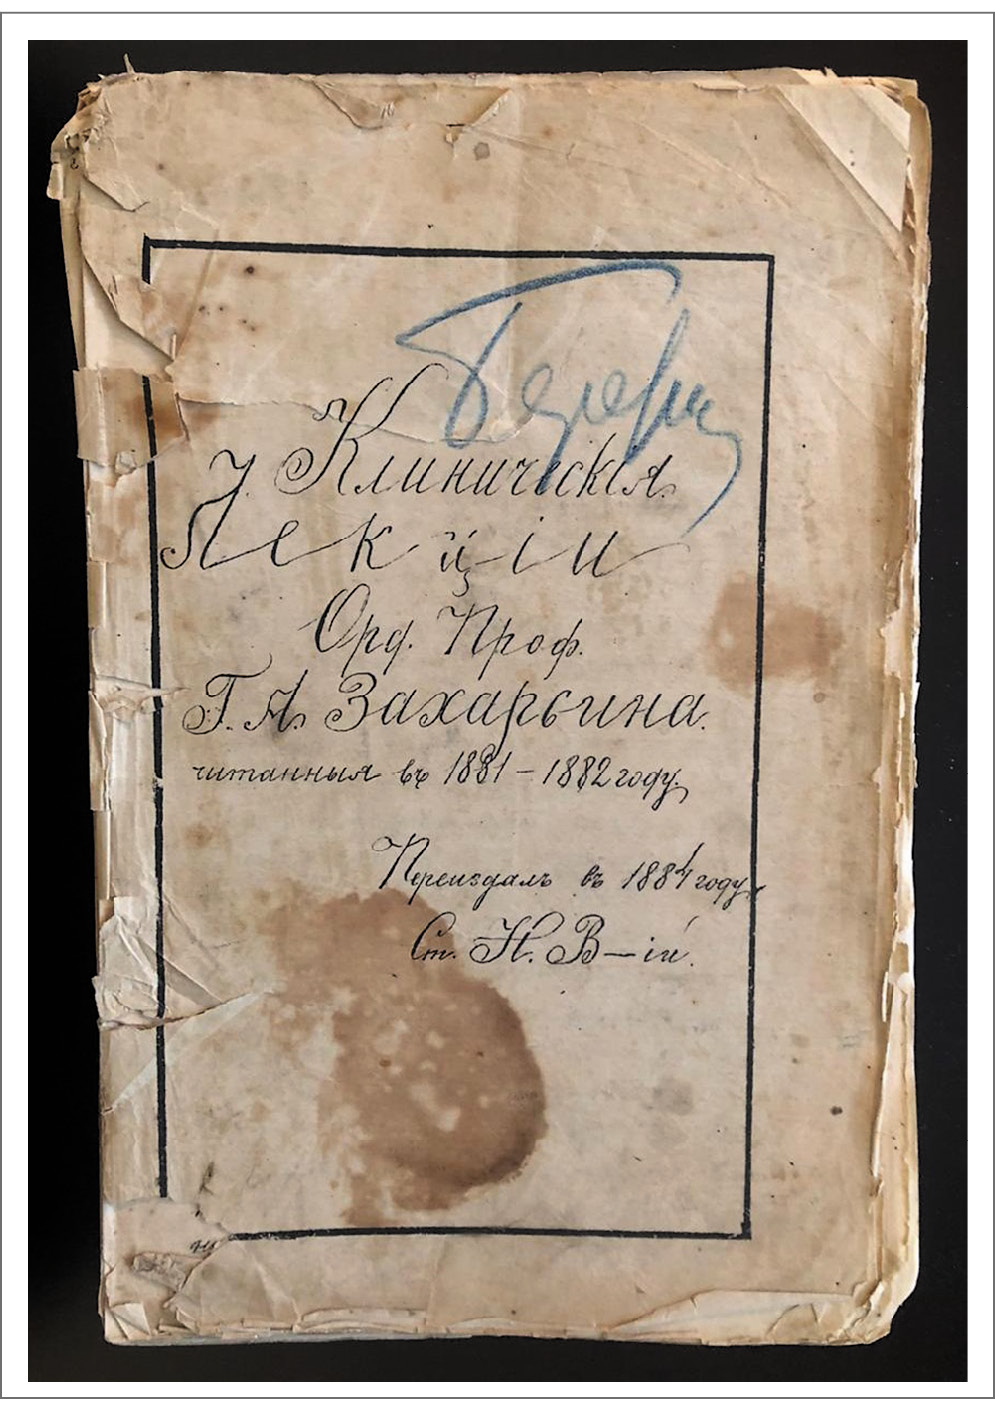 Клиническія
Лекціи
Орд. Проф.
Г. А. Захарьина.
читанныя въ 1881 – 1882 году.
Переиздалъ въ 1884 году
Ст. Н. В–ій.